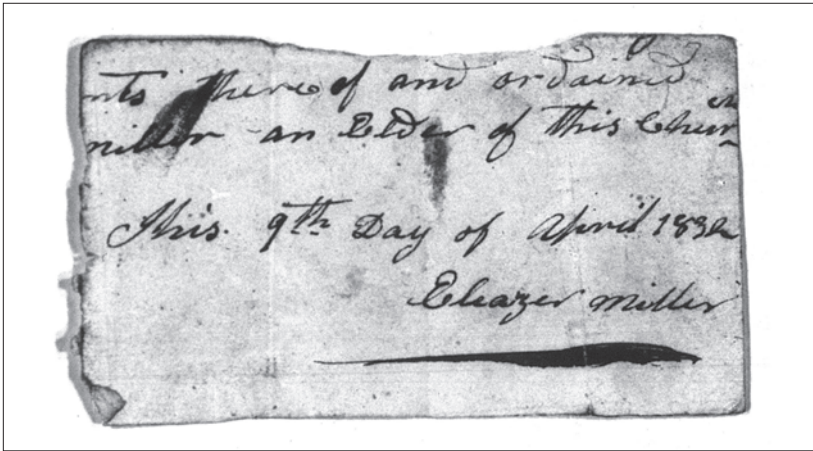 nts thereof and ordained
miller an Elder of this Chur
ch
This. 9th Day of April 1832
Eleazer Miller